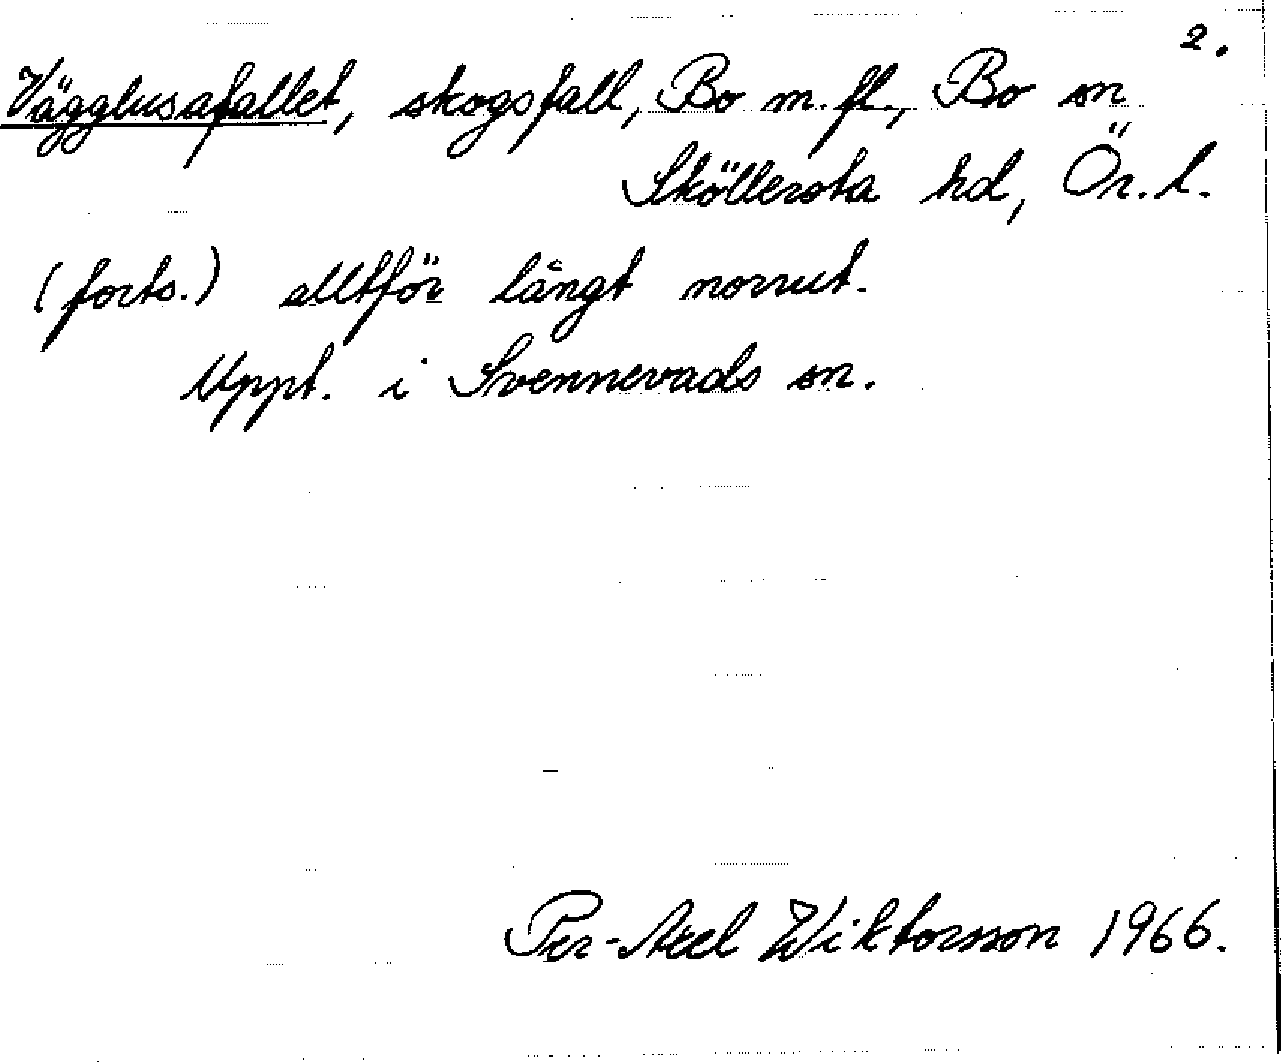 2.
Vägglusafallet, skogsfall, Bo m. fl., Bo sn
Sköllersta hd, Ör. l.
(forts.) alltför långt norrut.
Uppt. i Svennevads sn.
Per-Axel Wiktorsson 1966.